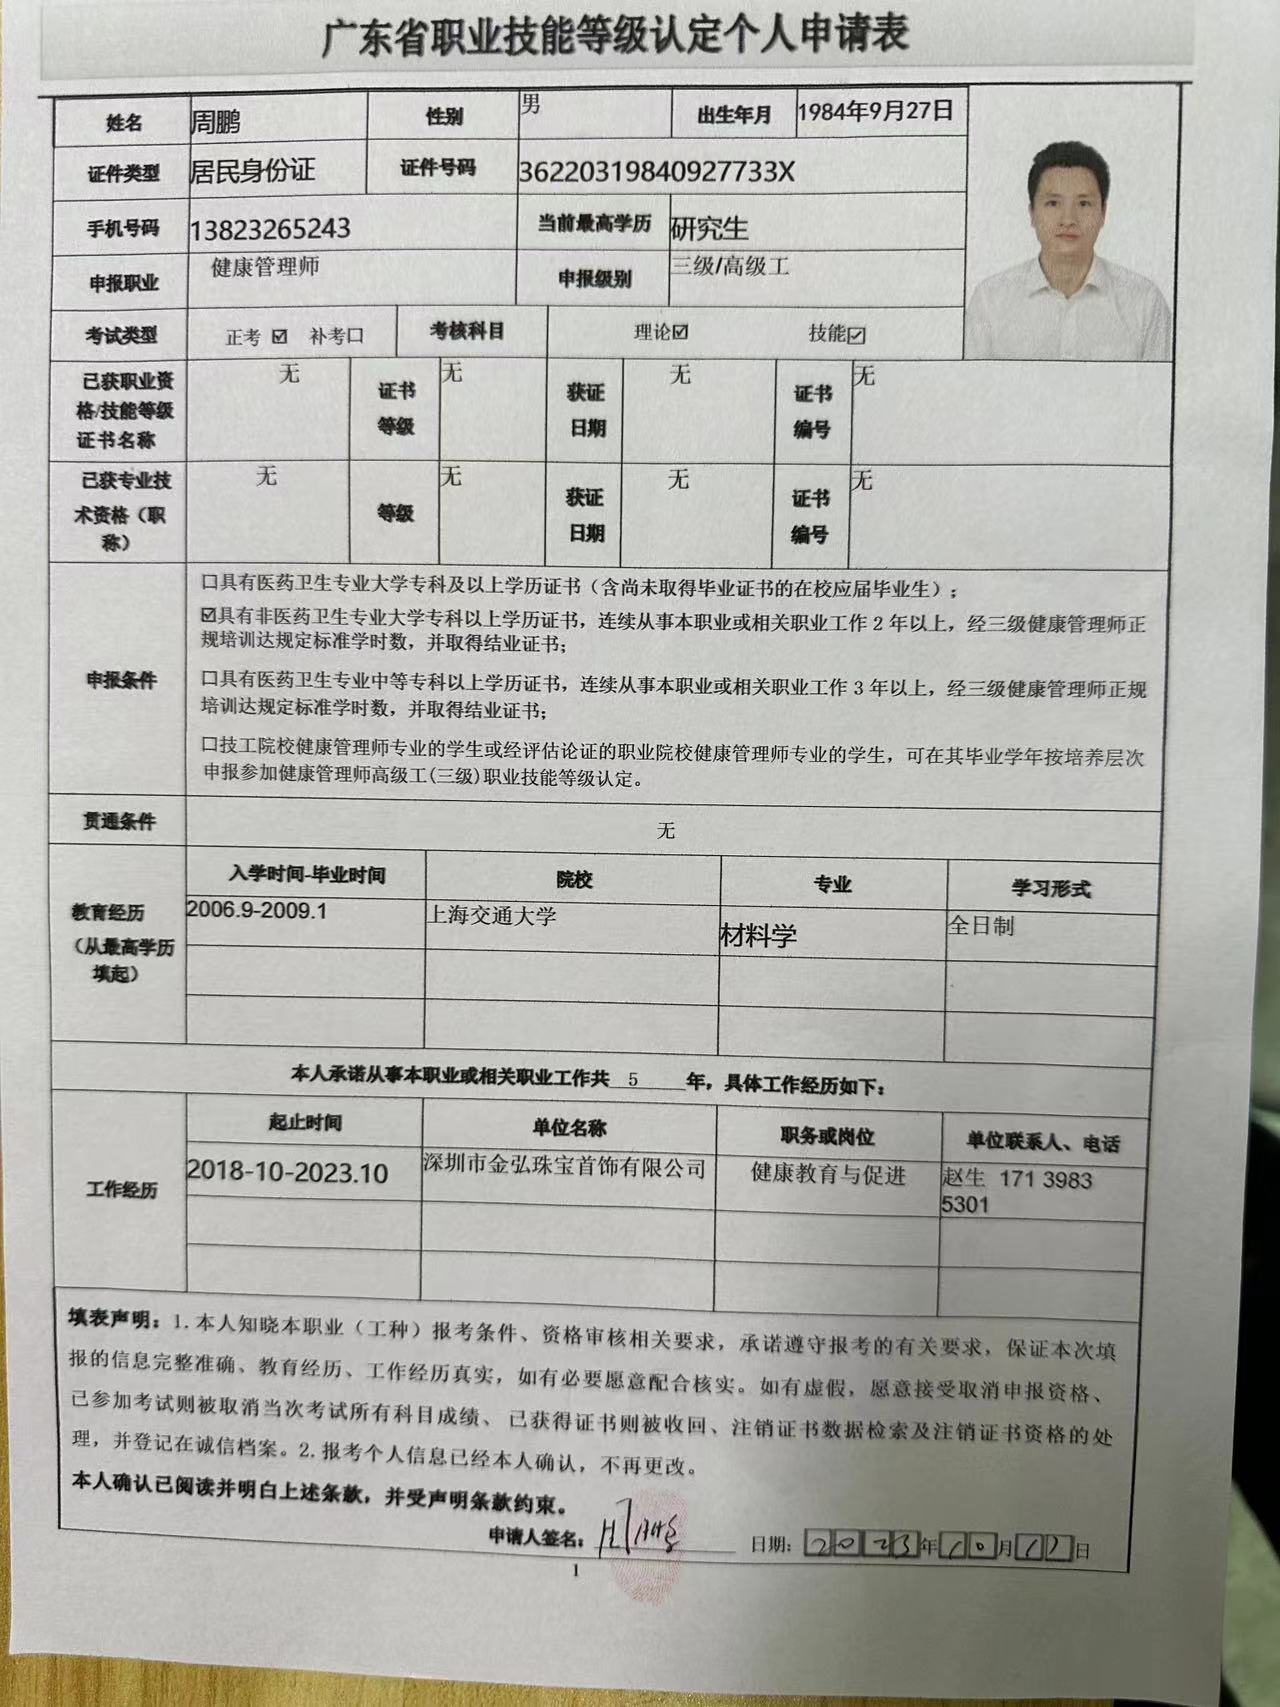 广东省职业技能等级认定个人申请表
姓名 周鹏 性别 男 出生年月 1984年9月27日
证件类型 居民身份证 证件号码 36220319840927733X
手机号码 13823265243 当前最高学历 研究生
申报职业 健康管理师 申报级别 三级/高级工
考试类型 正考 ☑ 补考口 考核科目 理论☑ 技能☑
已获职业资格/技能等级证书名称 无 证书等级 无 获证日期 无 证书编号 无
已获专业技术资格（职称） 无 等级 无 获证日期 无 证书编号 无
申报条件
口具有医药卫生专业大学专科及以上学历证书（含尚未取得毕业证书的在校应届毕业生）；
☑具有非医药卫生专业大学专科以上学历证书，连续从事本职业或相关职业工作 2 年以上，经三级健康管理师正
规培训达规定标准学时数，并取得结业证书；
口具有医药卫生专业中等专科以上学历证书，连续从事本职业或相关职业工作 3 年以上，经三级健康管理师正规
培训达规定标准学时数，并取得结业证书；
口技工院校健康管理师专业的学生或经评估论证的职业院校健康管理师专业的学生，可在其毕业学年按培养层次
申报参加健康管理师高级工(三级)职业技能等级认定。
贯通条件 无
教育经历（从最高学历填起）
入学时间-毕业时间 院校 专业 学习形式
2006.9-2009.1 上海交通大学 材料学 全日制
本人承诺从事本职业或相关职业工作共 5 年，具体工作经历如下：
工作经历
起止时间 单位名称 职务或岗位 单位联系人、电话
2018-10-2023.10 深圳市金弘珠宝首饰有限公司 健康教育与促进 赵生 171 3983
5301
填表声明：1.本人知晓本职业（工种）报考条件、资格审核相关要求，承诺遵守报考的有关要求，保证本次填
报的信息完整准确、教育经历、工作经历真实，如有必要愿意配合核实。如有虚假，愿意接受取消申报资格、
已参加考试则被取消当次考试所有科目成绩、 已获得证书则被收回、注销证书数据检索及注销证书资格的处
理，并登记在诚信档案。2.报考个人信息已经本人确认，不再更改。
本人确认已阅读并明白上述条款，并受声明条款约束。
申请人签名：周鹏 日期：2023年10月17日
1